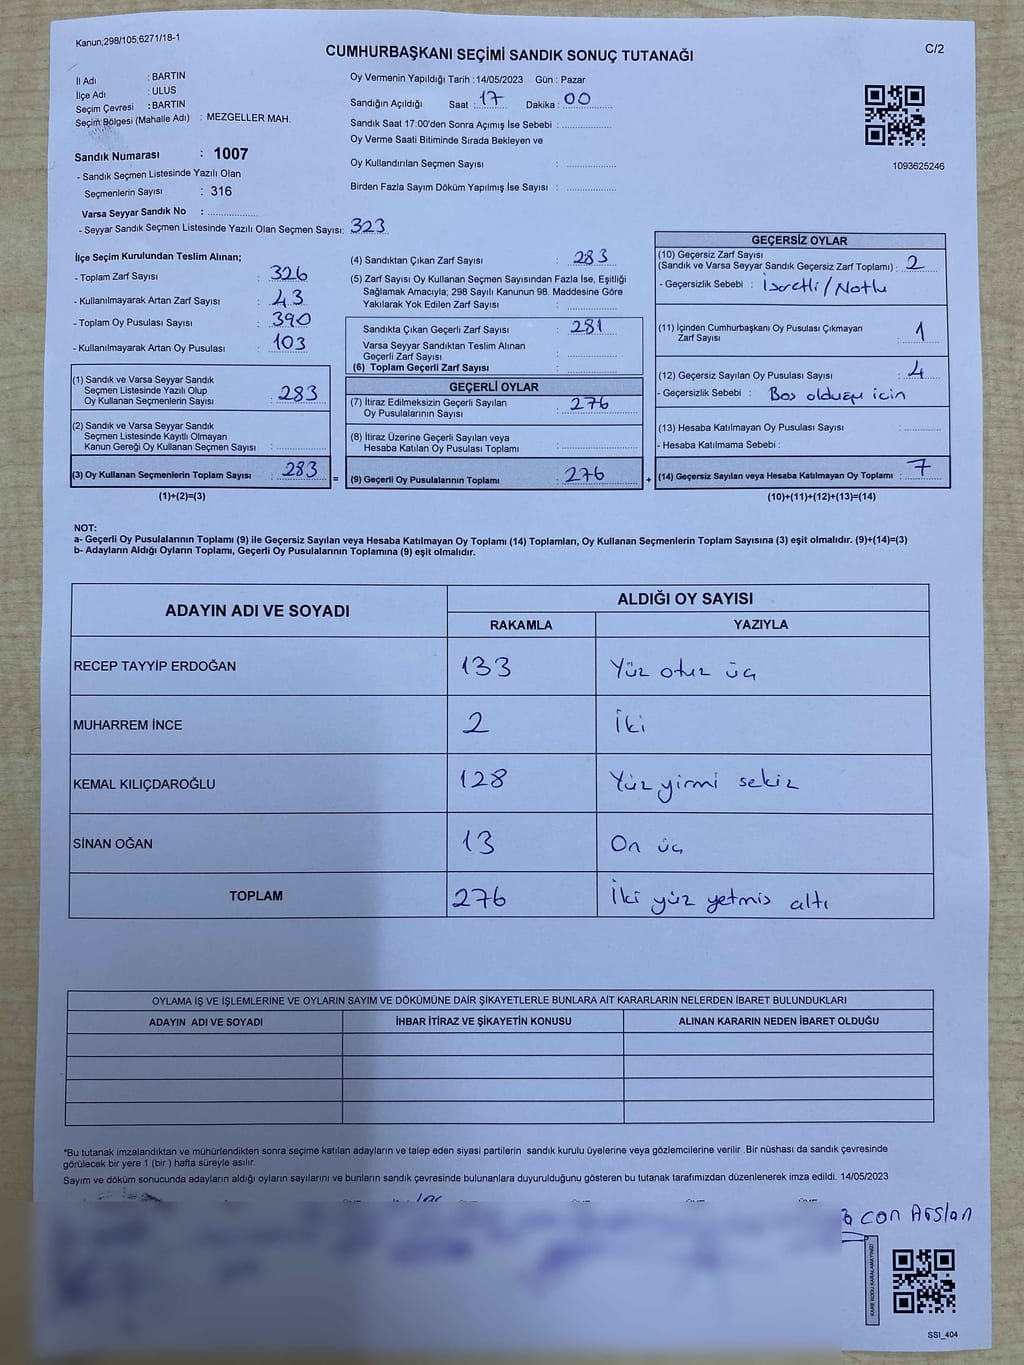 Kanun;298/105;6271/18-1
CUMHURBAŞKANI SEÇİMİ SANDIK SONUÇ TUTANAĞI
C/2
İl Adı : BARTIN
İlçe Adı : ULUS
Seçim Çevresi : BARTIN
Seçim Bölgesi (Mahalle Adı) : MEZGELLER MAH.
Sandık Numarası : 1007
- Sandık Seçmen Listesinde Yazılı Olan
Seçmenlerin Sayısı : 316
Varsa Seyyar Sandık No : ................
- Seyyar Sandık Seçmen Listesinde Yazılı Olan Seçmen Sayısı: 323
Oy Vermenin Yapıldığı Tarih : 14/05/2023 Gün : Pazar
Sandığın Açıldığı Saat : 17 Dakika : 00
Sandık Saat 17:00'den Sonra Açımış İse Sebebi : ................
Oy Verme Saati Bitiminde Sırada Bekleyen ve
Oy Kullandırılan Seçmen Sayısı : ................
Birden Fazla Sayım Döküm Yapılmış İse Sayısı : ................
1093625246
İlçe Seçim Kurulundan Teslim Alınan;
- Toplam Zarf Sayısı : 326
- Kullanılmayarak Artan Zarf Sayısı : 43
- Toplam Oy Pusulası Sayısı : 390
- Kullanılmayarak Artan Oy Pusulası : 103
(1) Sandık ve Varsa Seyyar Sandık
Seçmen Listesinde Yazılı Olup
Oy Kullanan Seçmenlerin Sayısı : 283
(2) Sandık ve Varsa Seyyar Sandık
Seçmen Listesinde Kayıtlı Olmayan
Kanun Gereği Oy Kullanan Seçmen Sayısı : ................
(3) Oy Kullanan Seçmenlerin Toplam Sayısı : 283
(1)+(2)=(3)
=
(4) Sandıktan Çıkan Zarf Sayısı : 283
(5) Zarf Sayısı Oy Kullanan Seçmen Sayısından Fazla İse, Eşitliği
Sağlamak Amacıyla; 298 Sayılı Kanunun 98. Maddesine Göre
Yakılarak Yok Edilen Zarf Sayısı : ................
Sandıkta Çıkan Geçerli Zarf Sayısı : 281
Varsa Seyyar Sandıktan Teslim Alınan
Geçerli Zarf Sayısı : ................
(6) Toplam Geçerli Zarf Sayısı : ................
GEÇERLİ OYLAR
(7) İtiraz Edilmeksizin Geçerli Sayılan
Oy Pusulalarının Sayısı : 276
(8) İtiraz Üzerine Geçerli Sayılan veya
Hesaba Katılan Oy Pusulası Toplamı : ................
(9) Geçerli Oy Pusulalarının Toplamı : 276
+
GEÇERSİZ OYLAR
(10) Geçersiz Zarf Sayısı
(Sandık ve Varsa Seyyar Sandık Geçersiz Zarf Toplamı) : 2
- Geçersizlik Sebebi : İşaretli/Notlu
(11) İçinden Cumhurbaşkanı Oy Pusulası Çıkmayan
Zarf Sayısı : 1
(12) Geçersiz Sayılan Oy Pusulası Sayısı : 4
- Geçersizlik Sebebi : Boş olduğu için
(13) Hesaba Katılmayan Oy Pusulası Sayısı : ................
- Hesaba Katılmama Sebebi :
(14) Geçersiz Sayılan veya Hesaba Katılmayan Oy Toplamı : 7
(10)+(11)+(12)+(13)=(14)
NOT:
a- Geçerli Oy Pusulalarının Toplamı (9) ile Geçersiz Sayılan veya Hesaba Katılmayan Oy Toplamı (14) Toplamları, Oy Kullanan Seçmenlerin Toplam Sayısına (3) eşit olmalıdır. (9)+(14)=(3)
b- Adayların Aldığı Oyların Toplamı, Geçerli Oy Pusulalarının Toplamına (9) eşit olmalıdır.
ADAYIN ADI VE SOYADI
ALDIĞI OY SAYISI
RAKAMLA YAZIYLA
RECEP TAYYİP ERDOĞAN 133 Yüz otuz üç
MUHARREM İNCE 2 İki
KEMAL KILIÇDAROĞLU 128 Yüz yirmi sekiz
SİNAN OĞAN 13 On üç
TOPLAM 276 İki yüz yetmis altı
OYLAMA İŞ VE İŞLEMLERİNE VE OYLARIN SAYIM VE DÖKÜMÜNE DAİR ŞİKAYETLERLE BUNLARA AİT KARARLARIN NELERDEN İBARET BULUNDUKLARI
ADAYIN ADI VE SOYADI İHBAR İTİRAZ VE ŞİKAYETİN KONUSU ALINAN KARARIN NEDEN İBARET OLDUĞU
*Bu tutanak imzalandıktan ve mühürlendikten sonra seçime katılan adayların ve talep eden siyasi partilerin sandık kurulu üyelerine veya gözlemcilerine verilir .Bir nüshası da sandık çevresinde
görülecek bir yere 1 (bir ) hafta süreyle asılır.
Sayım ve döküm sonucunda adayların aldığı oyların sayılarını ve bunların sandık çevresinde bulunanlara duyurulduğunu gösteren bu tutanak tarafımızdan düzenlenerek imza edildi. 14/05/2023
can Arslan
KARE KODU KARALAMAYINIZ!
SSI_404